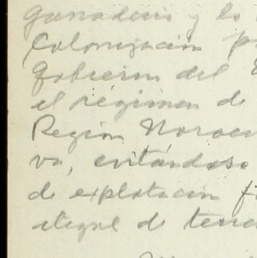 ganaderia y la
Colonización p
Gobierno del E
el régimen de
Region Noroes
va, evitándose
de explotación fi
ilegal de terre